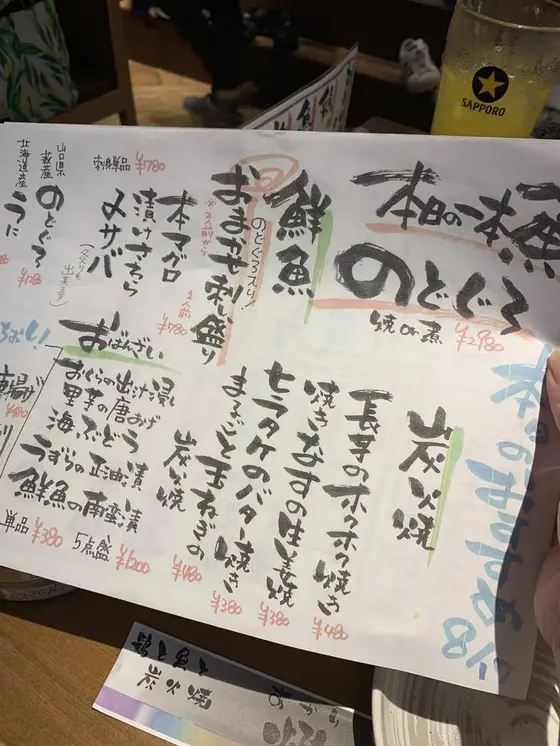 本日のおすすめ
本日の一本魚
のどぐろ
焼or煮 ¥2980
鮮魚
のどぐろ入り!
おまかせ刺し盛り
※2人前から
1人前 ¥780
刺身単品 ¥780
本マグロ
漬けさわら
〆サバ
(炙りも出来ます)
山口県萩産
のどぐろ
北海道産
うに
炭火焼
長芋のホクホク焼き ¥480
焼きなすの生姜焼 ¥380
ヒラタケのバター焼き ¥380
まるごと玉ねぎの炭火焼 ¥480
おばんざい
おくらの出汁浸し
里芋の唐あげ
海ぶどう
うずらの正油漬
鮮魚の南蛮漬
単品 ¥380
5点盛 ¥900
SAPPORO
鶏と魚と
炭火焼